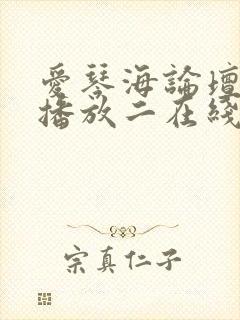 愛琴海論壇
播放二在綫
宗真仁子